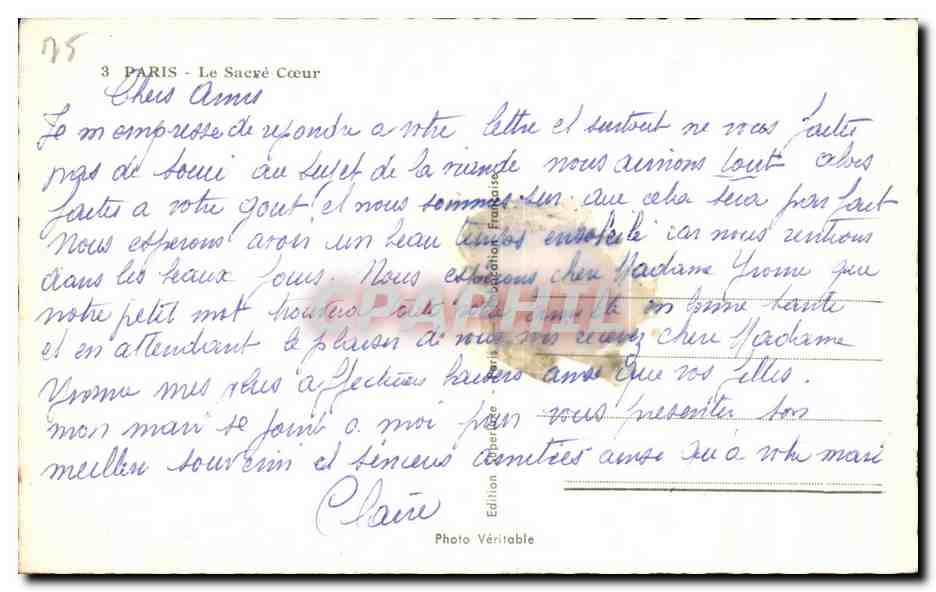 75
3 PARIS - Le Sacré Cœur
Chers Amis
Je m empresse de repondre a votre lettre et surtout ne vous faites
pas de souci au sujet de la viande nous aimons tout alors
faites a votre gout et nous sommes sur que cela sera parfait
Nous esperons avoir un beau temps ensoleillé car nous rentrons
dans les beaux jours. Nous esperons chere Madame Yvonne que
notre petit mot trouvera toute votre famille en bonne sante
et en attendant le plaisir de vous voir recevez chere Madame
Yvonne mes plus affectueux baisers ainsi que vos filles.
mon mari se joint a moi pour vous presenter son
meilleur souvenir et sinceres amitiées ainsi qu'a votre mari
Claire
Edition Superluxe - Paris Fabrication Française
CPAPHIL
Photo Véritable